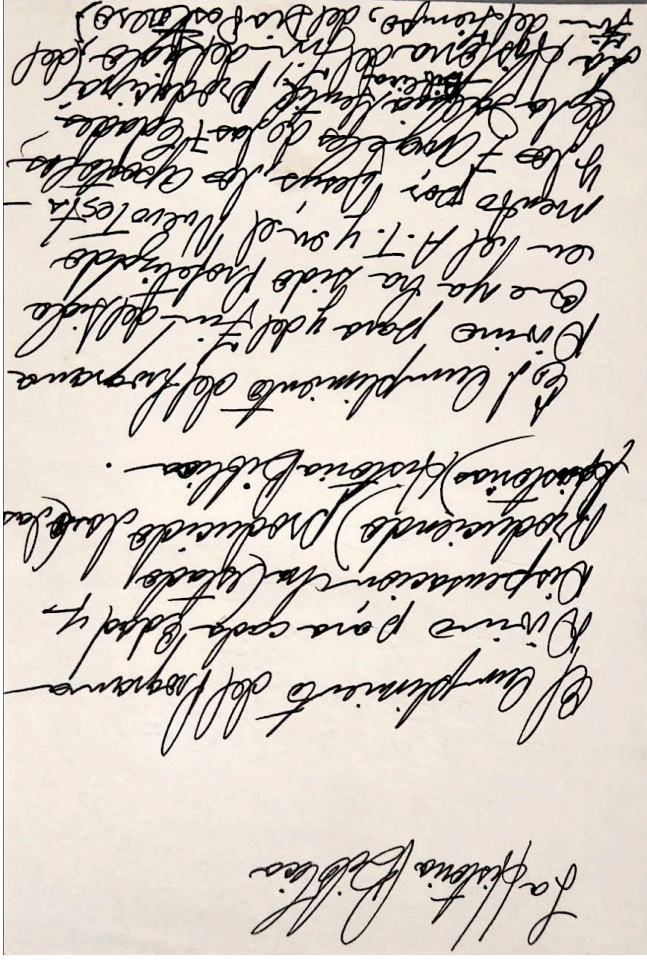 La Historia Bíblica
El Cumplimiento del Programa
Divino para cada Edad y
Dispensación ha (estado,
produciendo) producido la o (las
historias) historia Bíblica.
El Cumplimiento del Programa
Divino para y del Fin del siglo
Que ya ha sido Profetizado
en el A.T. y en el Nuevo Testa-
mento por, Jesus, los apostoles
y los 7 Angeles de las 7 edades
de la Iglesia Gentil, producirá,
la Historia Bíblica del Fin del siglo, del
Fin del tiempo, del Dia Postrero,